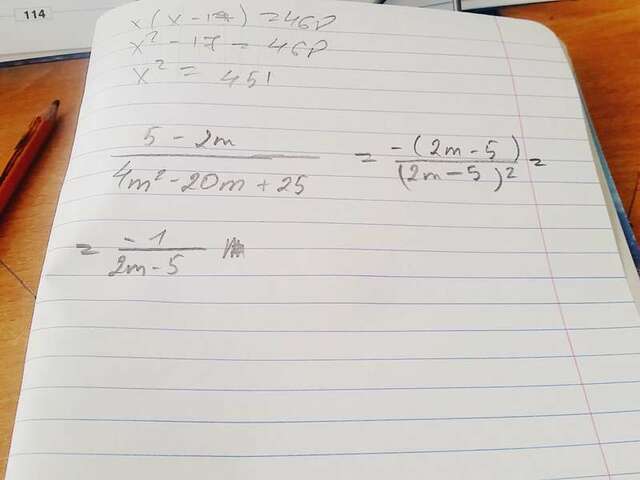 114
x(x-17) = 468
x² - 17 = 468
x² = 451
5 - 2m / 4m² - 20m + 25 = -(2m - 5) / (2m - 5)² =
= -1 / 2m - 5